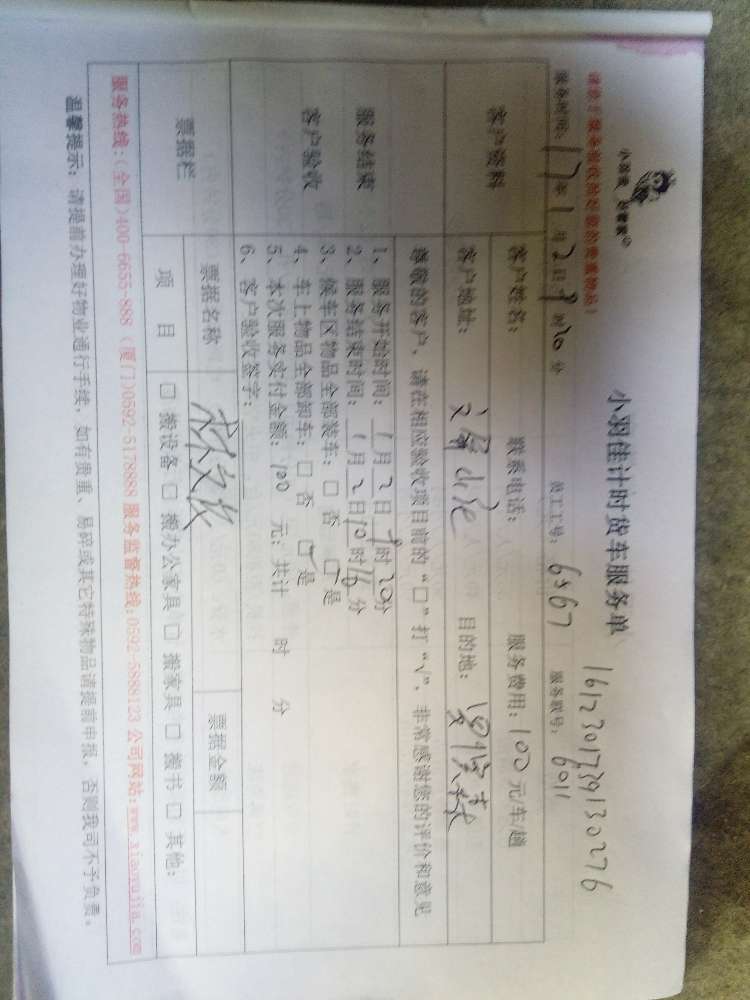 小羽佳 好管家
小羽佳计时货车服务单
1612301739130276
请您于服务前收拾好您的贵重物品！
服务时间：17年1月2日9时20分 员工工号：6567 服务联号：6011
客户资料
客户姓名： 联系电话： 服务费用：100元/车/趟
客户地址： 文屏山庄 目的地：
服务结束
客户验收
尊敬的客户，请在相应验收项目前的“口”打“√”，非常感谢您的评价和意见
1、服务开始时间：1月2日9时20分
2、服务结束时间：1月2日10时16分
3、候车区物品全部装车：□ 否 □ 是
4、车上物品全部卸车：□ 否 □ 是
5、本次服务实付金额：100元；共计 时 分
6、客户验收签字：
票据栏
票据名称 票据金额
项 目 □ 搬设备 □ 搬办公家具 □ 搬家具 □ 搬书 □ 其他：
服务热线：(全国)400-6655-888 (厦门)0592-5178888 服务监督热线:0592-5888123 公司网站:www.xiaoyujia.com
温馨提示：请提前办理好物业通行手续，如有贵重、易碎或其它特殊物品请提前申报，否则我司不予负责。